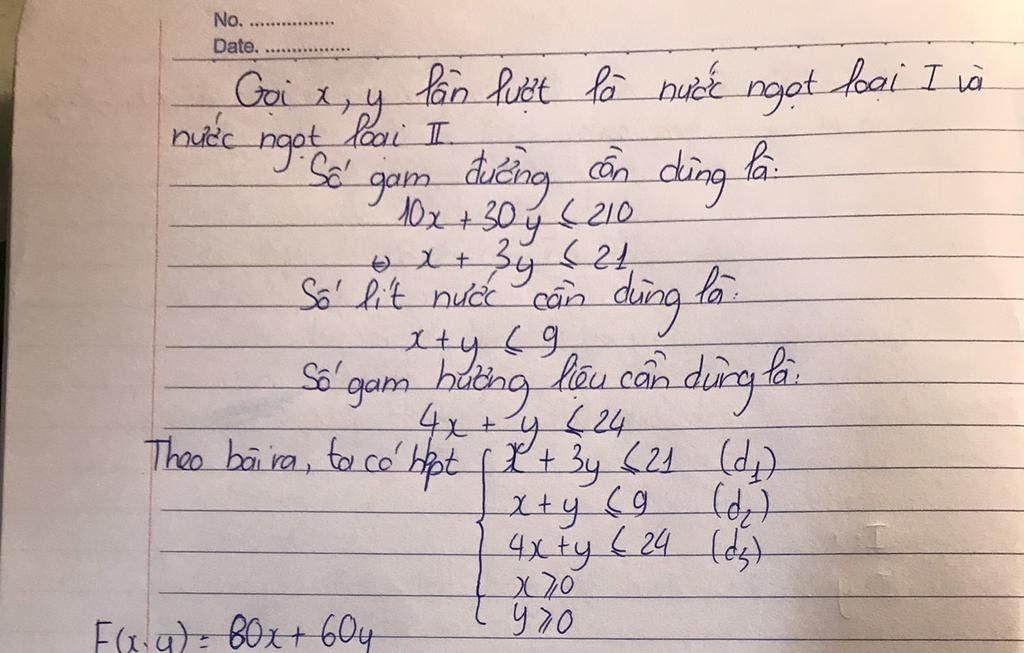 No. ................
Date. ................
Gọi x, y lần lượt là nước ngọt loại I và
nước ngọt loại II.
Số gam đường cần dùng là:
10x + 30y ≤ 210
⇔ x + 3y ≤ 21
Số lít nước cần dùng là:
x + y ≤ 9
Số gam hương liệu cần dùng là:
4x + y ≤ 24
Theo bài ra, ta có hbpt { x + 3y ≤ 21 (d₁)
x + y ≤ 9 (d₂)
4x + y ≤ 24 (d₃)
x ≥ 0
y ≥ 0
F(x, y) = 80x + 60y